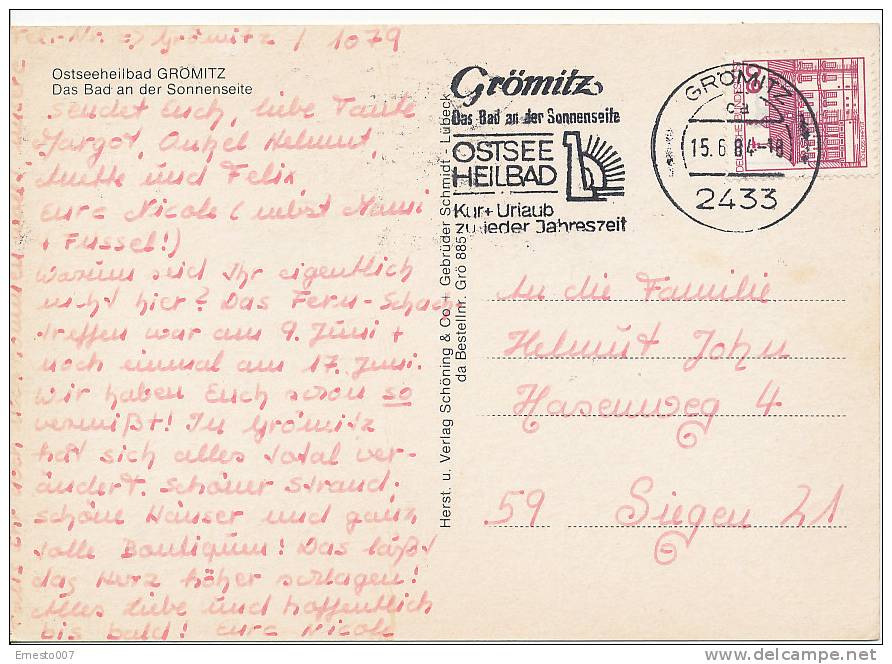 Tel.-Nr. => Grömitz / 1079
Ostseeheilbad GRÖMITZ
Das Bad an der Sonnenseite
sendet Euch, liebe Tante
Margot, Onkel Helmut,
und Felix,
Eure Nicole (nebst Mami
+ Fussel!)
Warum seid Ihr eigentlich
nicht hier? Das Fern-Schach-
treffen war am 9. Juni +
noch einmal am 17. Juni.
Wir haben Euch schon so
vermißt! In Grömitz
hat sich alles total ver-
ändert. Schöner Strand,
schöne Häuser und ganz
tolle Boutiquen! Das läßt
das Herz höher schlagen!
Alles Liebe und hoffentlich
bis bald! Eure Nicole
Herst. u. Verlag Schöning & Co + Gebrüder Schmidt - Lübeck
da Bestellnr. Grö 885
Grömitz
Das Bad an der Sonnenseite
OSTSEE
HEILBAD
Kur+ Urlaub
zu jeder Jahreszeit
GRÖMITZ
ca
15.6.84-18
2433
DEUTSCHE BUNDESPOST
An die Familie
Helmut John
Hasenweg 4
59 Siegen 21
Ernesto007
www.delcampe.net